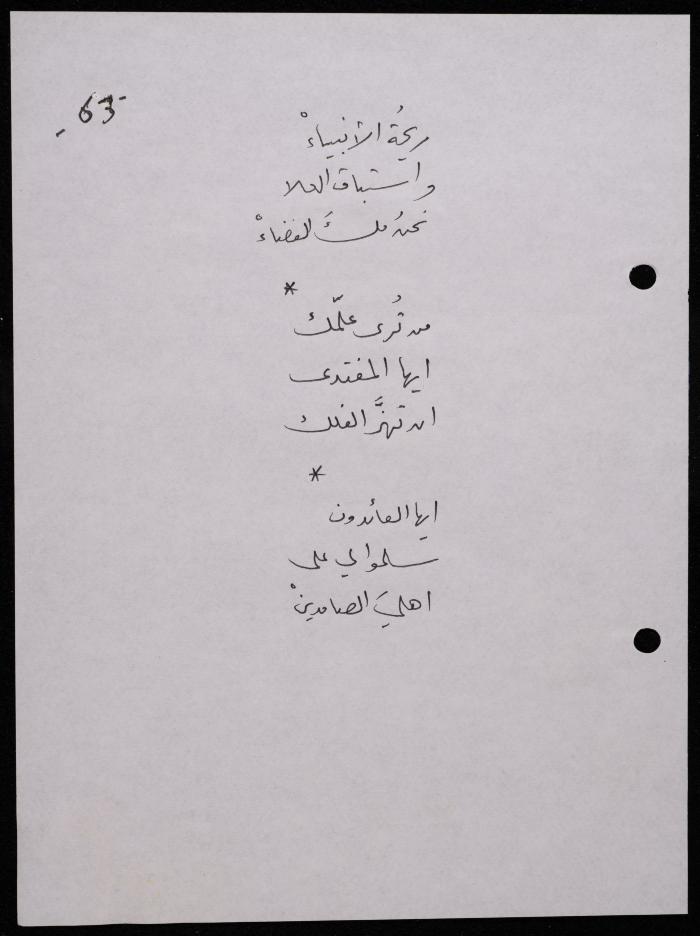 -63-
ريحُة الأنبياءْ
واستباق العلا
نحنُ ملكَ الفضاءْ
*
من تُرى علّمك
ايها المفتدى
ان تهزَّ الفلك
*
ايها العائدون
سلموا لي على
اهليَ الصامدينْ